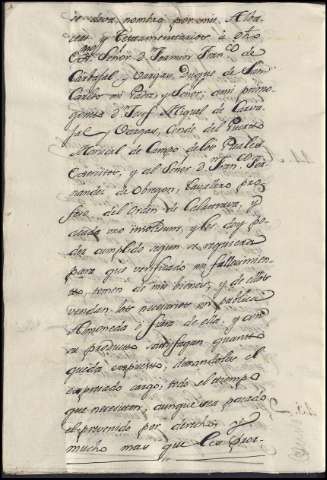 se dira nombro por mis Alba-
ceas y Testamentarios à dho
Exmo Señor Dn Ramon Franco de
Carbajal y Vargas, Duque de San
Carlos mi Padre, y Señor, à mi primo-
genito Dn José Miguel de Carva-
jal y Vargas, Conde del Puerto
Mariscal de Campo de los Reales
Exercitos, y al Señor Dn Franco Fer-
nandez de Obregon, Cavallero pro-
feso del Orden de Calatrava, y
à cada uno insolidum, y les doy po-
der cumplido segun se requiera
para que verificado mi fallecimien-
to, tomen de mis bienes, y de ellos
vendan los necesarios en publica
Almoneda ó fuera de ella, y con
su producto satisfagan quanto
queda expuesto, durandoles el
expresado cargo, todo el tiempo
que necesiten, aunque sea pasado
el prevenido por derecho, y
mucho mas que les pror-